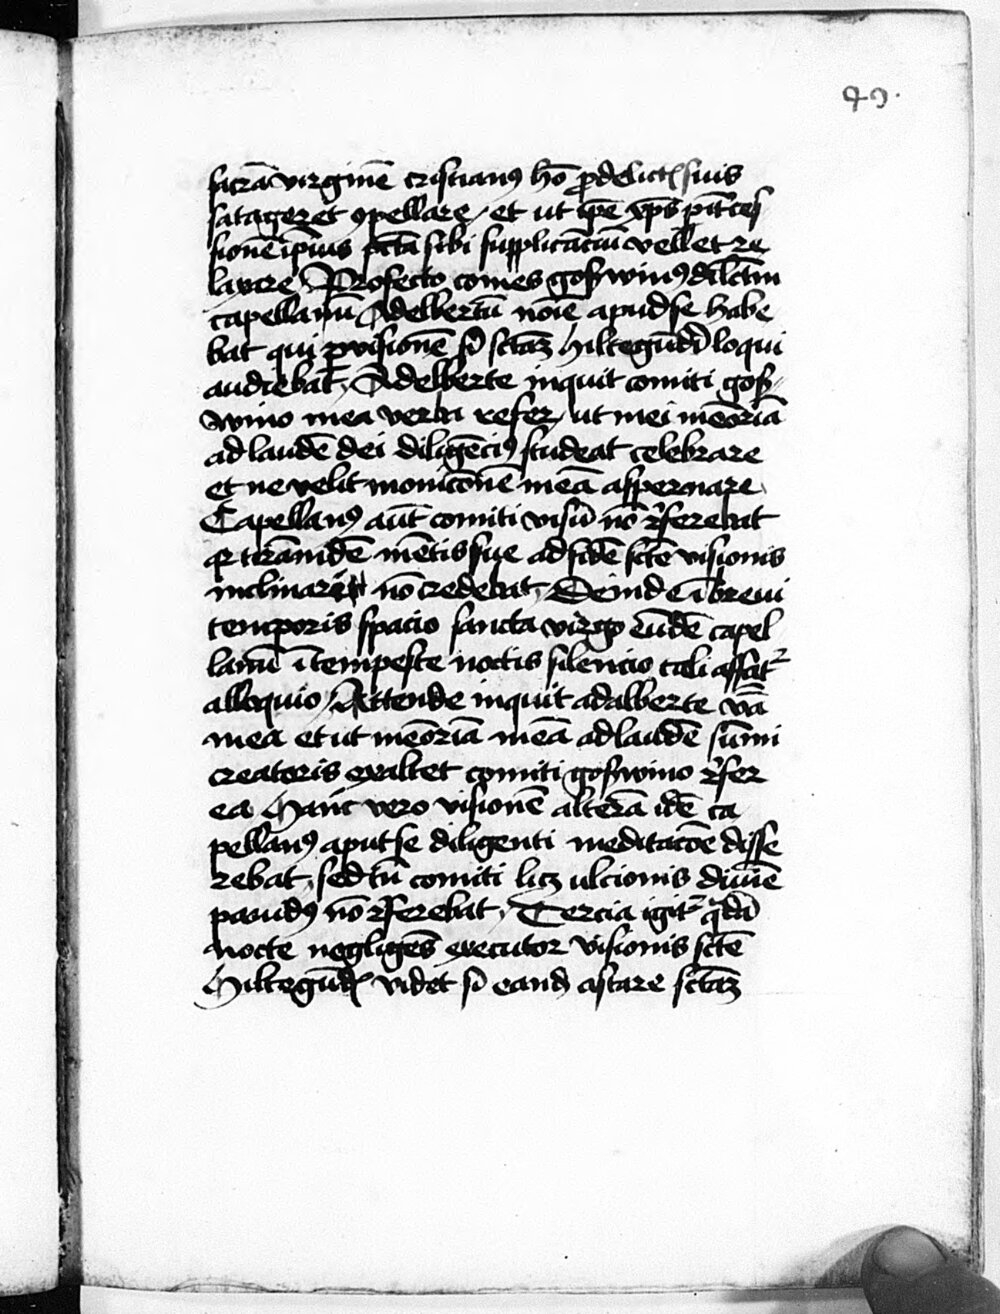 49.
sacrā virginē cristian⁹ hō p̄ delictꝭ suis
satageret ꝯpellare / et ut ip̄e xp̄s p̱ int̄ces
sionē ip̄ius pctā sibi supplicāciū vellet re
laxare / Profecto comes goswin⁹ dilc̄tm
capellanū Adelbertū noīe apud se habe
bat qui p̱ visionē s̄ sctāꝫ hiltegūdē loqui
audiebat / Adelberte inquit comiti gos
wino mea verba refer / ut mei meōriā
ad laudē dei diligēci⁹ studeat celebrare
et ne velit monicōnē meā aspernare
Capellan⁹ aūt comiti visū nō r̄ferebat
q̱ tirānidē mētis sue ad fidē sctē visionis
inclinari nō credebat / Deinde ī brevi
temporis spacio sancta virgo eūdē capel
lanū ītempeste noctis silencio tali affat̄
alloquio / Attende inquit adalberte v̄ba
mea et ut meōriā meā ad laudē sūmi
creatoris exaltet comiti goswino r̄fer
ea Hanc vero visionē alterā idē ca
pellan⁹ aput se diligenti meditacōe disse
rebat / sed tn̄ comiti licꝫ ulcionis divīe
pavid⁹ nō r̄ferebat / Tercia igit̄ q̄dā
nocte negligēs executor visionis sctē
Hiltegūdꝭ videt s̄ eandē astare sctāꝫ